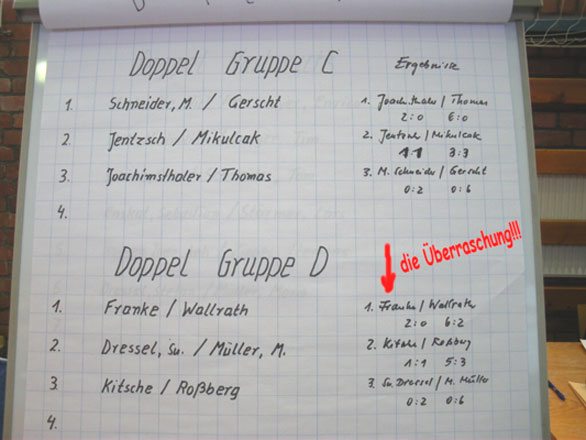 Doppel Gruppe C
1. Schneider, M. / Gerscht
2. Jentzsch / Mikulcak
3. Joachimsthaler / Thomas
4.
Ergebnisse
1. Joach.thaler / Thomas
2:0 6:0
2. Jentzsch / Mikulcak
1:1 3:3
3. M. Schneider / Gerscht
0:2 0:6
Doppel Gruppe D
1. Franke / Wallrath
2. Dressel, Su. / Müller, M.
3. Kitsche / Roßberg
4.
die Überraschung!!!
1. Franke / Wallrath
2:0 6:2
2. Kitsche / Roßberg
1:1 5:3
3. Su. Dressel / M. Müller
0:2 0:6